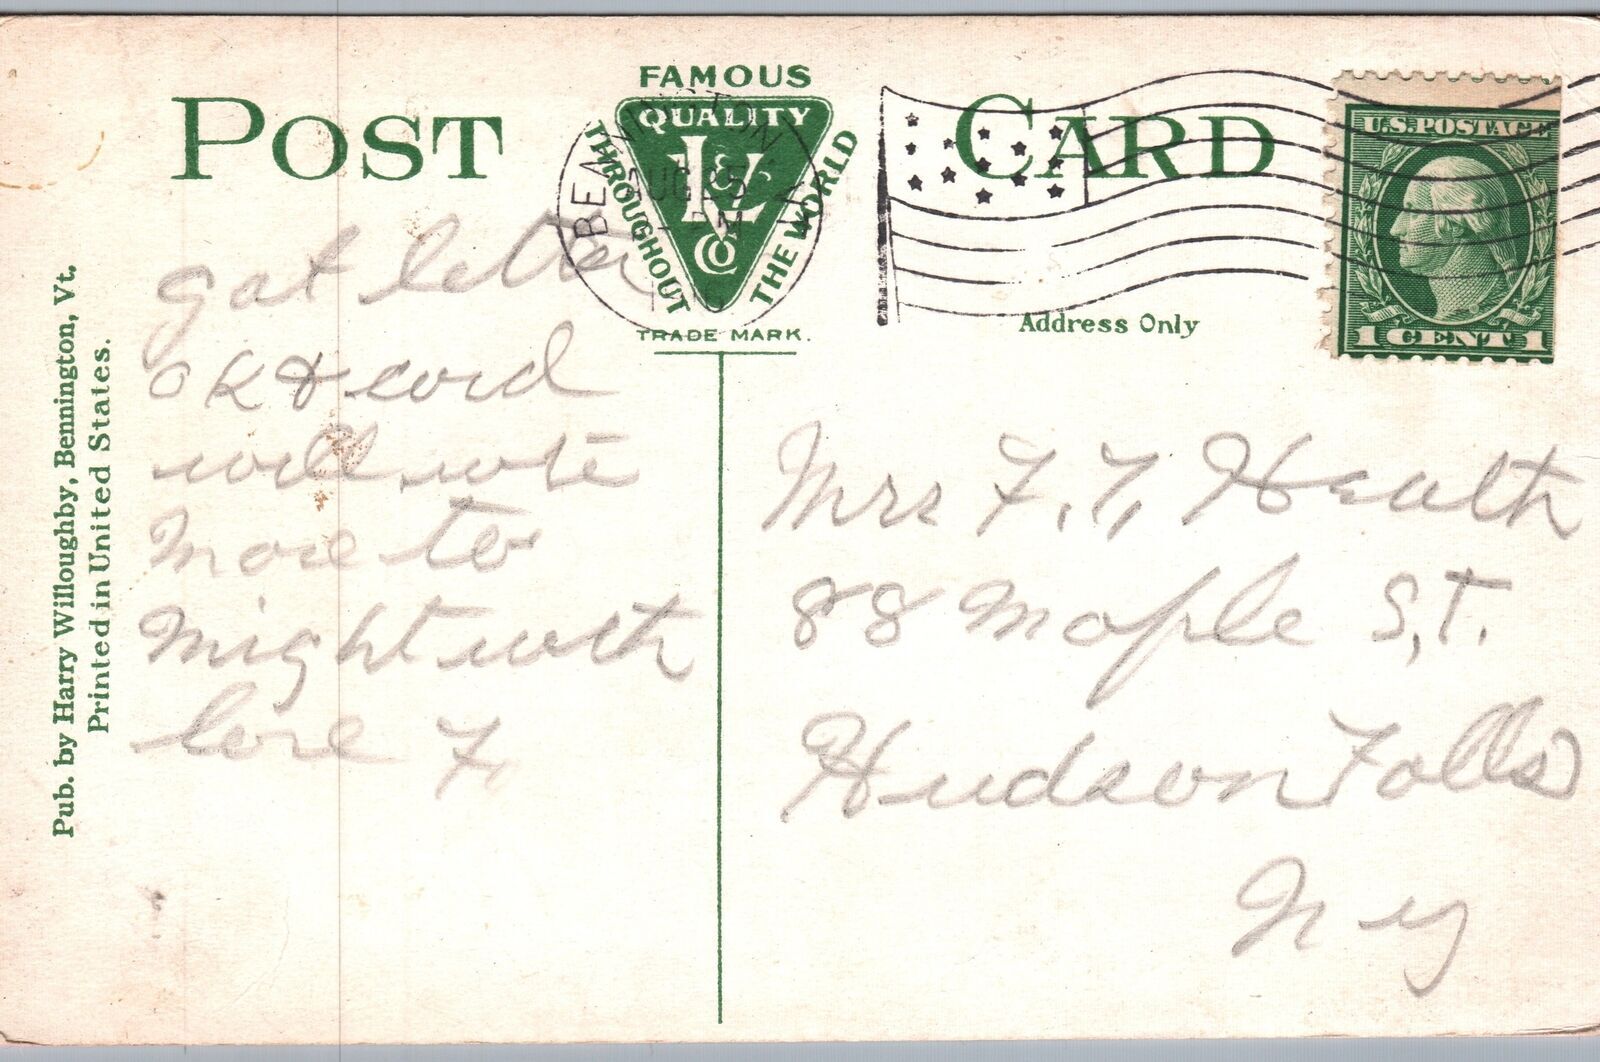 POST CARD
FAMOUS
QUALITY
THROUGHOUT
THE WORLD
L&V
CO
TRADE MARK.
BENNINGTON
AUG 25
U.S.POSTAGE
1 CENT 1
Address Only
Pub. by Harry Willoughby, Bennington, Vt.
Printed in United States.
got letter
OK & card
will write
More to
Might with
love F.
Mrs F. T. Heath
88 Maple S,T.
Hudson Falls
N Y